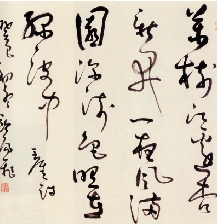 萬樹江邊杏
新開一夜風滿
園深淺色照在
綠波中
王涯詩